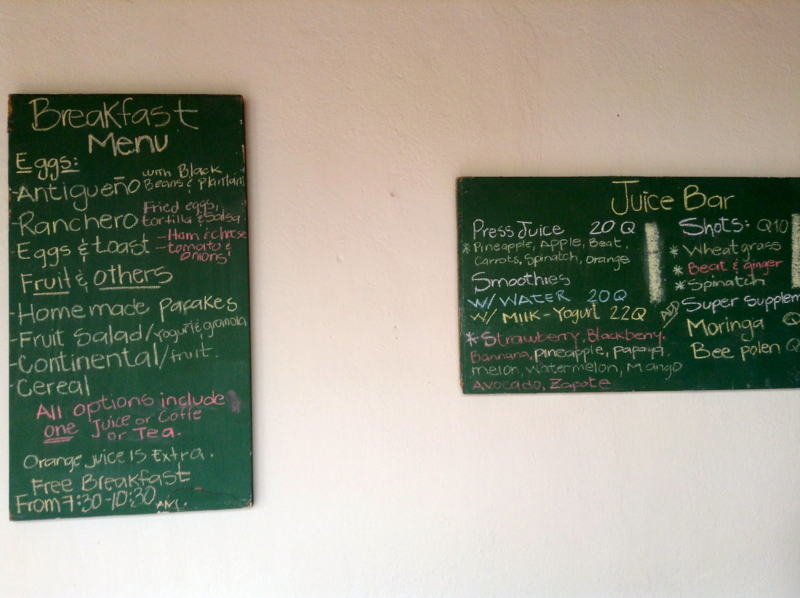 Breakfast
Menu
Eggs:
-Antigueño with Black
Beans & plantain
-Ranchero Fried eggs,
tortilla & salsa
-Eggs & toast -Ham & cheese
-tomato &
onions
Fruit & others
-Homemade Papakes
-Fruit Salad/yogurt & granola
-Continental/fruit.
-Cereal
All options include
one Juice or Coffe
or Tea.
Orange juice is Extra.
Free Breakfast
From 7:30-10:30 AM.
Juice Bar
Press Juice 20 Q
*Pineapple, Apple, Beat,
Carrots, Spinatch, orange
Smoothies
W/ WATER 20Q
W/ MILK-Yogurt 22Q
*Strawberry, Blackberry,
Bannana, pineapple, papaya,
melon, watermelon, Mango
Avocado, Zapote
Shots: Q10
*Wheatgrass
*Beat & ginger
*Spinatch
Add Super supplem
Moringa Q
Bee polen Q